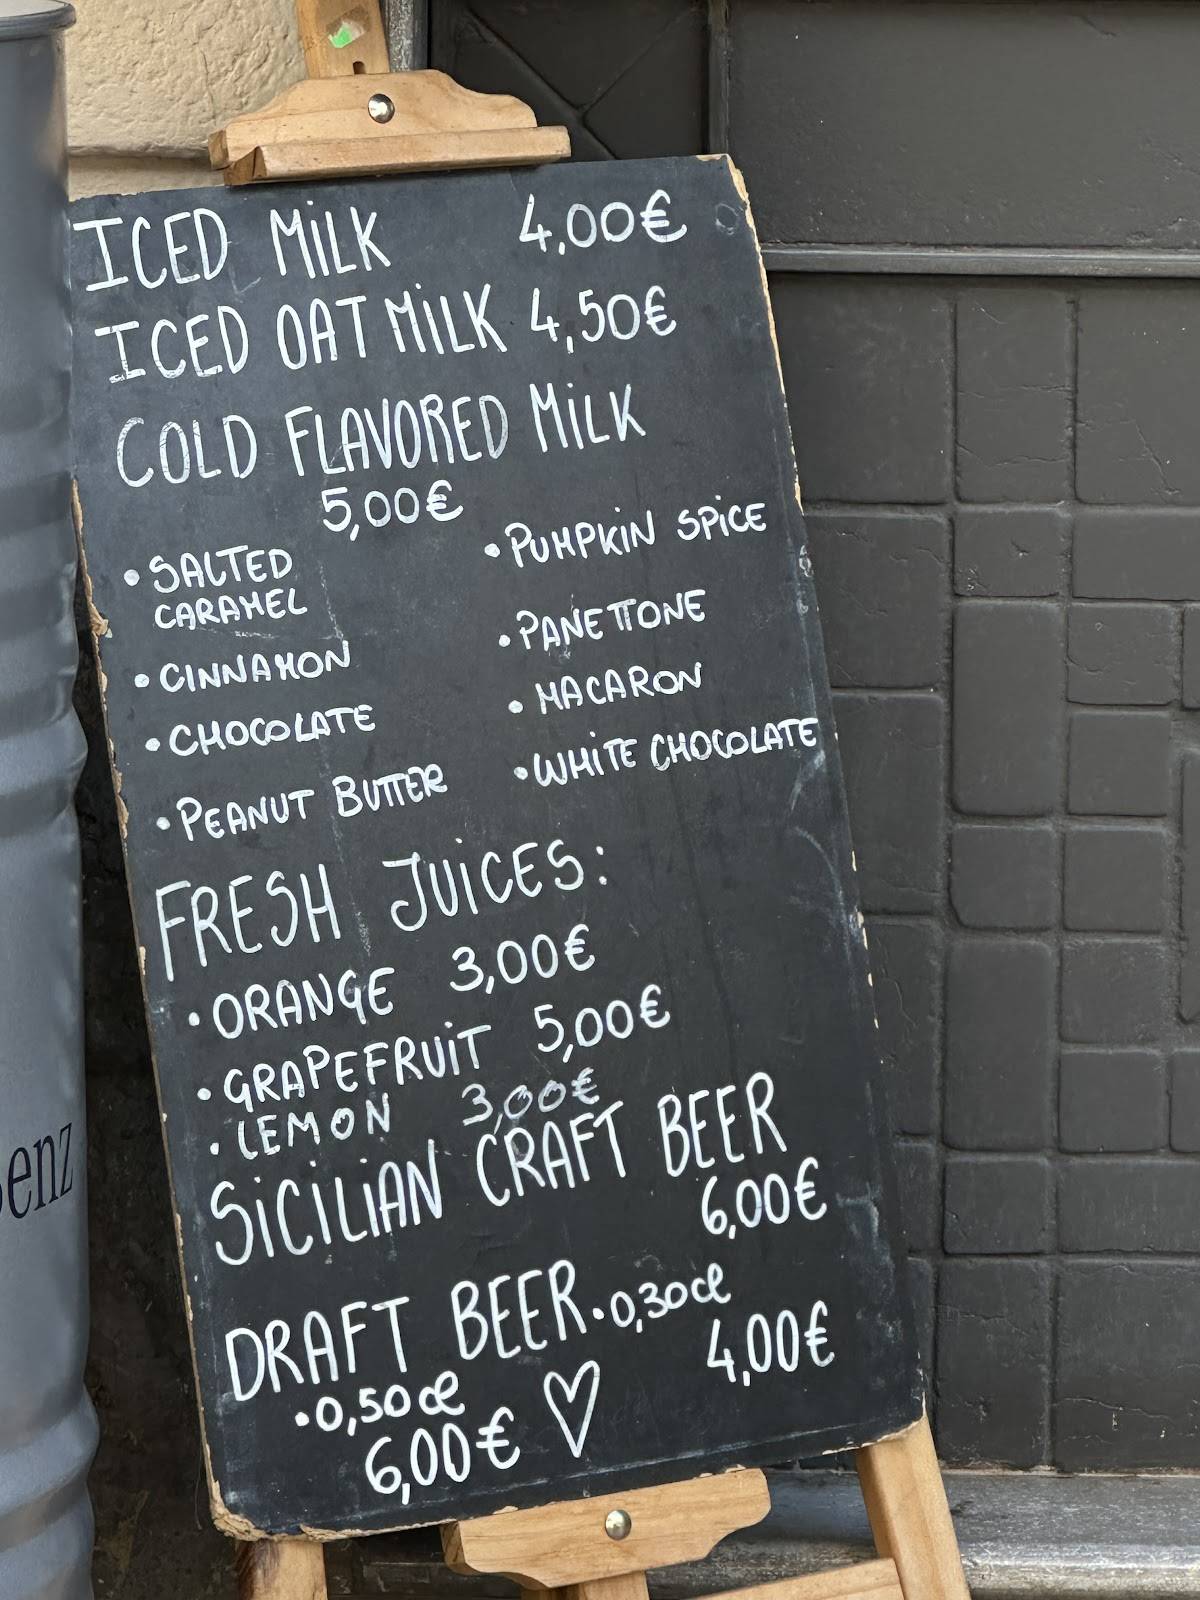 ICED MiLK 4,00€
ICED OAT MiLK 4,50€
COLD FLAVORED MiLK
5,00€
• SALTED CARAMEL
• CINNAMON
• CHOCOLATE
• PEANUT BUTTER
• PUMPKiN SPiCE
• PANETTONE
• MACARON
• WHiTE CHOCOLATE
FRESH JUiCES:
• ORANGE 3,00€
• GRAPEFRUiT 5,00€
• LEMON 3,00€
SiCiLiAN CRAFT BEER
6,00€
DRAFT BEER • 0,30cl
4,00€
• 0,50cl
6,00€ ♡
enz